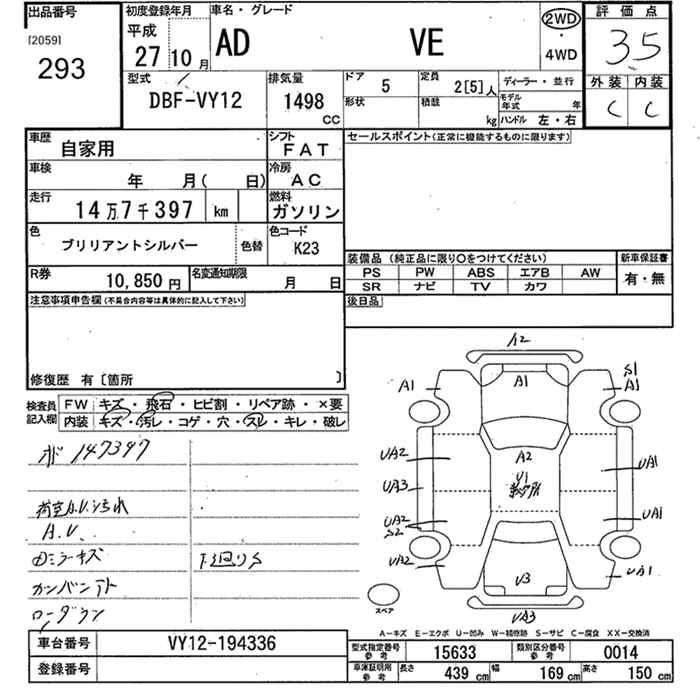 出品番号
[2059]
293
初度登録年月
平成
27 10月
車名・グレード
AD VE
2WD
・
4WD
評価点
3.5
外装 内装
C C
型式
DBF-VY12
排気量
1498
CC
ドア
5
形状
定員
2[5]人
積載
kg
ディーラー・並行
モデル年式 年
ハンドル 左・右
車歴
自家用
シフト
FAT
車検
年 月( 日)
冷房
AC
走行
14万7千397 km
燃料
ガソリン
色
ブリリアントシルバー
色替
色コード
K23
R券
10,850円
名変通知期限
月 日
セールスポイント(正常に機能するものに限ります)
装備品(純正品に限り○をつけてください)
PS PW ABS エアB AW
SR ナビ TV カワ
新車保証書
有・無
後日品
注意事項申告欄(不具合内容等は具体的に記入して下さい)
修復歴 有〔箇所 〕
検査員記入欄
FW キズ・飛石・ヒビ割・リペア跡・×要
内装 キズ・汚レ・コゲ・穴・スレ・キレ・破レ
147397
荷室A.U.汚れ
A.U.
ミラーキズ
下廻りS
カンバンアト
ローダウン
A2
A1
A1
S1
A1
UA2
A2
U1
UA1
UA3
UA2
S2
UA1
UA2
UA1
U3
UA3
スペア
A-キズ E-エクボ U-凹み W-補修跡 S-サビ C-腐食 XX-交換済
車台番号
VY12-194336
登録番号
型式指定番号
参考
15633
類別区分番号
参考
0014
車庫証明用
参考
長さ 439cm
幅 169cm
高さ 150cm